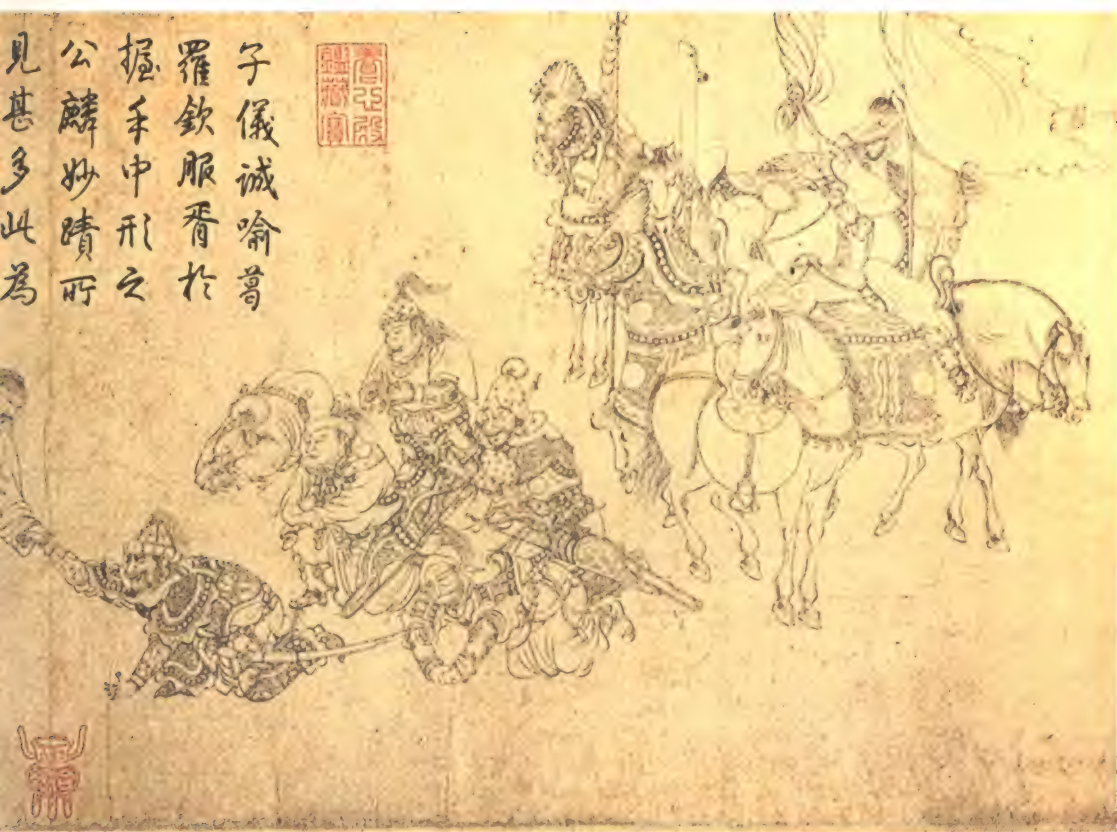 子儀誠喻葛
羅欽服胥於
握手中形之
公麟妙蹟所
見甚多此為